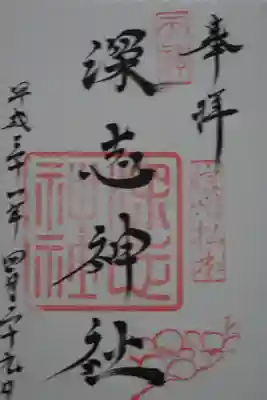 奉拝
深志神社
平成三十一年四月二十九日
深志神社